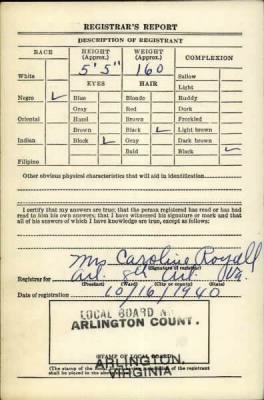 REGISTRAR'S REPORT
DESCRIPTION OF REGISTRANT
RACE HEIGHT (Approx.) WEIGHT (Approx.) COMPLEXION
5' 5" 160
White Sallow
EYES HAIR Light
Negro ✓ Blue Blonde Ruddy
Gray Red Dark
Oriental Hazel Brown Freckled
Brown Black ✓ Light brown
Indian Black ✓ Gray Dark brown
Bald Black ✓
Filipino
Other obvious physical characteristics that will aid in identification
I certify that my answers are true; that the person registered has read or has had
read to him his own answers; that I have witnessed his signature or mark and that
all of his answers of which I have knowledge are true, except as follows:
Mrs Caroline Royall
(Signature of registrar)
Registrar for Arl. Va.
(Precinct) (Ward) (City or county) (State)
Date of registration 10/16/1940
LOCAL BOARD
ARLINGTON COUNT.
(STAMP OF LOCAL BOARD)
ARLINGTON,
VIRGINIA
(The stamp of the local board of the registrant
shall be placed in the above